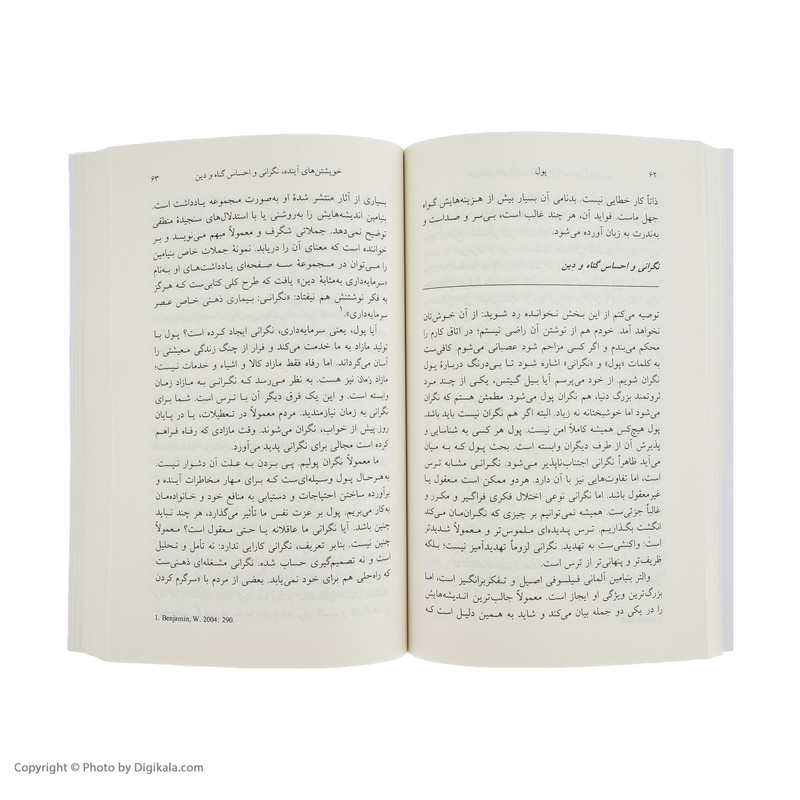 ۶۲
پول
ذاتاً کار خطایی نیست. بدنامی آن بسیار بیش از هزینه‌هایش گواه
جهل ماست. فواید آن، هر چند غالب است، بی‌سر و صداست و
به‌ندرت به زبان آورده می‌شود.
نگرانی و احساس گناه و دین
توصیه می‌کنم از این بخش نخوانده رد شوید: از آن خوش‌تان
نخواهد آمد. خودم هم از نوشتن آن راضی نیستم؛ در اتاق کارم را
محکم می‌بندم و اگر کسی مزاحم شود عصبانی می‌شوم. کافی‌ست
به کلمات «پول» و «نگرانی» اشاره شود تا بی‌درنگ دربارهٔ پول
نگران شویم. از خود می‌پرسم آیا بیل گیتس، یکی از چند مرد
ثروتمند بزرگ دنیا، هم نگران پول می‌شود. مطمئن هستم که نگران
می‌شود اما خوشبختانه نه زیاد. البته اگر هم نگران نیست باید باشد.
پول هیچ‌کس همیشه کاملاً امن نیست. پول هر کسی به شناسایی و
پذیرش آن از طرف دیگران وابسته است. بحث پول که به میان
می‌آید ظاهراً نگرانی اجتناب‌ناپذیر می‌شود. نگرانی مشابه ترس
است، اما تفاوت‌هایی نیز با آن دارد. هردو ممکن است معقول یا
غیرمعقول باشد. اما نگرانی نوعی اختلال فکری فراگیر و مکرر و
غالباً جزئی‌ست. همیشه نمی‌توانیم بر چیزی که نگران‌مان می‌کند
انگشت بگذاریم. ترس پدیده‌ای ملموس‌تر و معمولاً شدیدتر
است: واکنشی‌ست به تهدید. نگرانی لزوماً تهدیدآمیز نیست؛ بلکه
ظریف‌تر و پنهانی‌تر از ترس است.
والتر بنیامین آلمانی فیلسوفی اصیل و تفکربرانگیز است، اما
بزرگ‌ترین ویژگی او ایجاز است. معمولاً جالب‌ترین اندیشه‌هایش
را در یکی دو جمله بیان می‌کند و شاید به همین دلیل است که
خویشتن‌های آینده، نگرانی و احساس گناه و دین
۶۳
بسیاری از آثار منتشر شدهٔ او به‌صورت مجموعه یادداشت است.
بنیامین اندیشه‌هایش را به‌روشنی یا با استدلال‌های سنجیدهٔ منطقی
توضیح نمی‌دهد. جملاتی شگرف و معمولاً مبهم می‌نویسد و بر
خواننده است که معنای آن را دریابد. نمونهٔ جملات خاص بنیامین
را می‌توان در مجموعهٔ سه صفحه‌ای یادداشت‌های او به‌نام
«سرمایه‌داری به‌مثابهٔ دین» یافت که طرح کلی کتابی‌ست که هرگز
به فکر نوشتنش هم نیفتاد: «نگرانی: بیماری ذهنی خاص عصر
سرمایه‌داری».۱
آیا پول، یعنی سرمایه‌داری، نگرانی ایجاد کرده است؟ پول با
تولید مازاد به ما خدمت می‌کند و فرار از چنگ زندگی معیشتی را
آسان می‌گرداند. اما رفاه فقط مازاد کالا و اشیاء و خدمات نیست؛
مازاد زمان نیز هست. به نظر می‌رسد که نگرانی به مازاد زمان
وابسته است. و این یک فرق دیگر آن با ترس است. شما برای
نگرانی به زمان نیازمندید. مردم معمولاً در تعطیلات، یا در پایان
روز پیش از خواب، نگران می‌شوند. وقت مازادی که رفاه فراهم
کرده است مجالی برای نگرانی پدید می‌آورد.
ما معمولاً نگران پولیم. پی بردن به علت آن دشوار نیست.
به‌هرحال پول وسیله‌ای‌ست که برای مهار مخاطرات آینده و
برآورده ساختن احتیاجات و دستیابی به منافع خود و خانواده‌مان
به‌کار می‌بریم. پول بر عزت نفس ما تأثیر می‌گذارد، هر چند نباید
چنین باشد. آیا نگرانی ما عاقلانه یا حتی معقول است؟ معمولاً
چنین نیست. بنابر تعریف، نگرانی کارایی ندارد: نه تأمل و تحلیل
است و نه تصمیم‌گیری حساب شده. نگرانی مشغله‌ای ذهنی‌ست
که راه‌حلی هم برای خود نمی‌یابد. بعضی از مردم با «سرگرم کردن
1. Benjamin, W. 2004: 290.
Copyright © Photo by Digikala.com